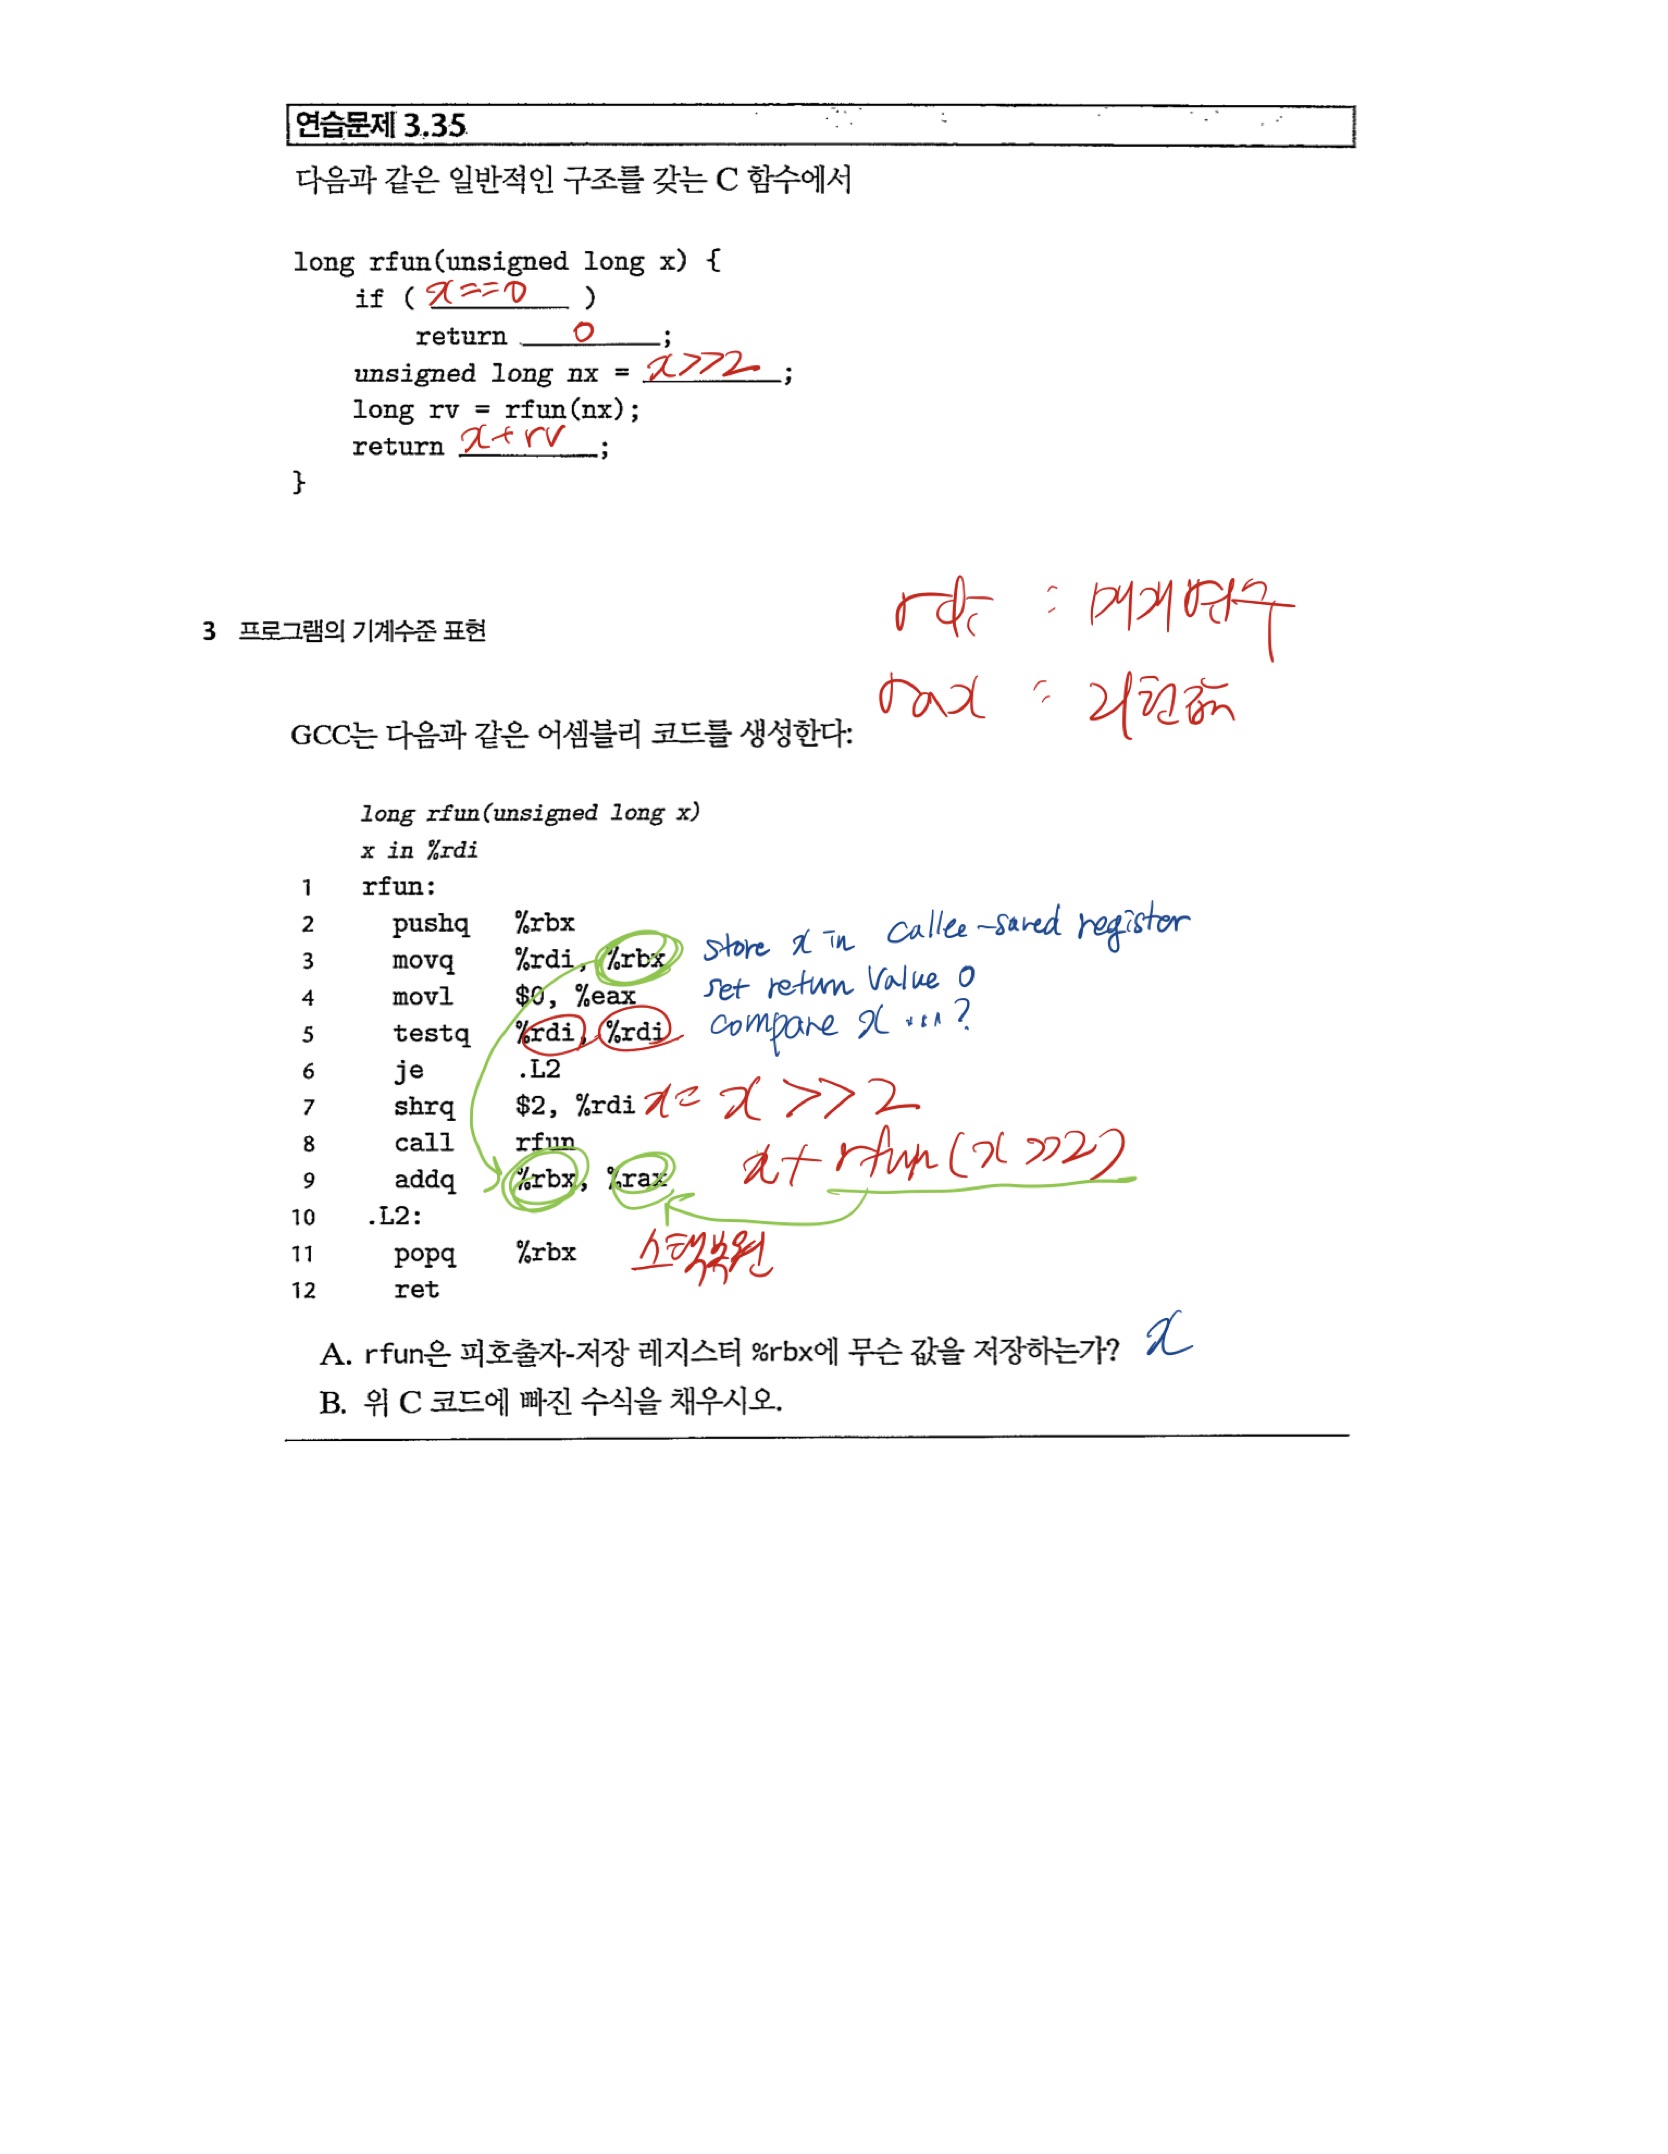 연습문제 3.35
다음과 같은 일반적인 구조를 갖는 C 함수에서
long rfun(unsigned long x) {
if ( x==0 )
return 0 ;
unsigned long nx = x>>2 ;
long rv = rfun(nx);
return x+rv ;
}
rdi : 매개변수
3 프로그램의 기계수준 표현
rax : 리턴값
GCC는 다음과 같은 어셈블리 코드를 생성한다:
long rfun(unsigned long x)
x in %rdi
1 rfun:
2 pushq %rbx
3 movq %rdi, %rbx store x in callee-saved register
4 movl $0, %eax set return value 0
5 testq %rdi, %rdi compare x ...?
6 je .L2
7 shrq $2, %rdi x = x >> 2
8 call rfun
9 addq %rbx, %rax x + rfun(x>>2)
10 .L2:
11 popq %rbx 스택복원
12 ret
A. rfun은 피호출자-저장 레지스터 %rbx에 무슨 값을 저장하는가? x
B. 위 C 코드에 빠진 수식을 채우시오.